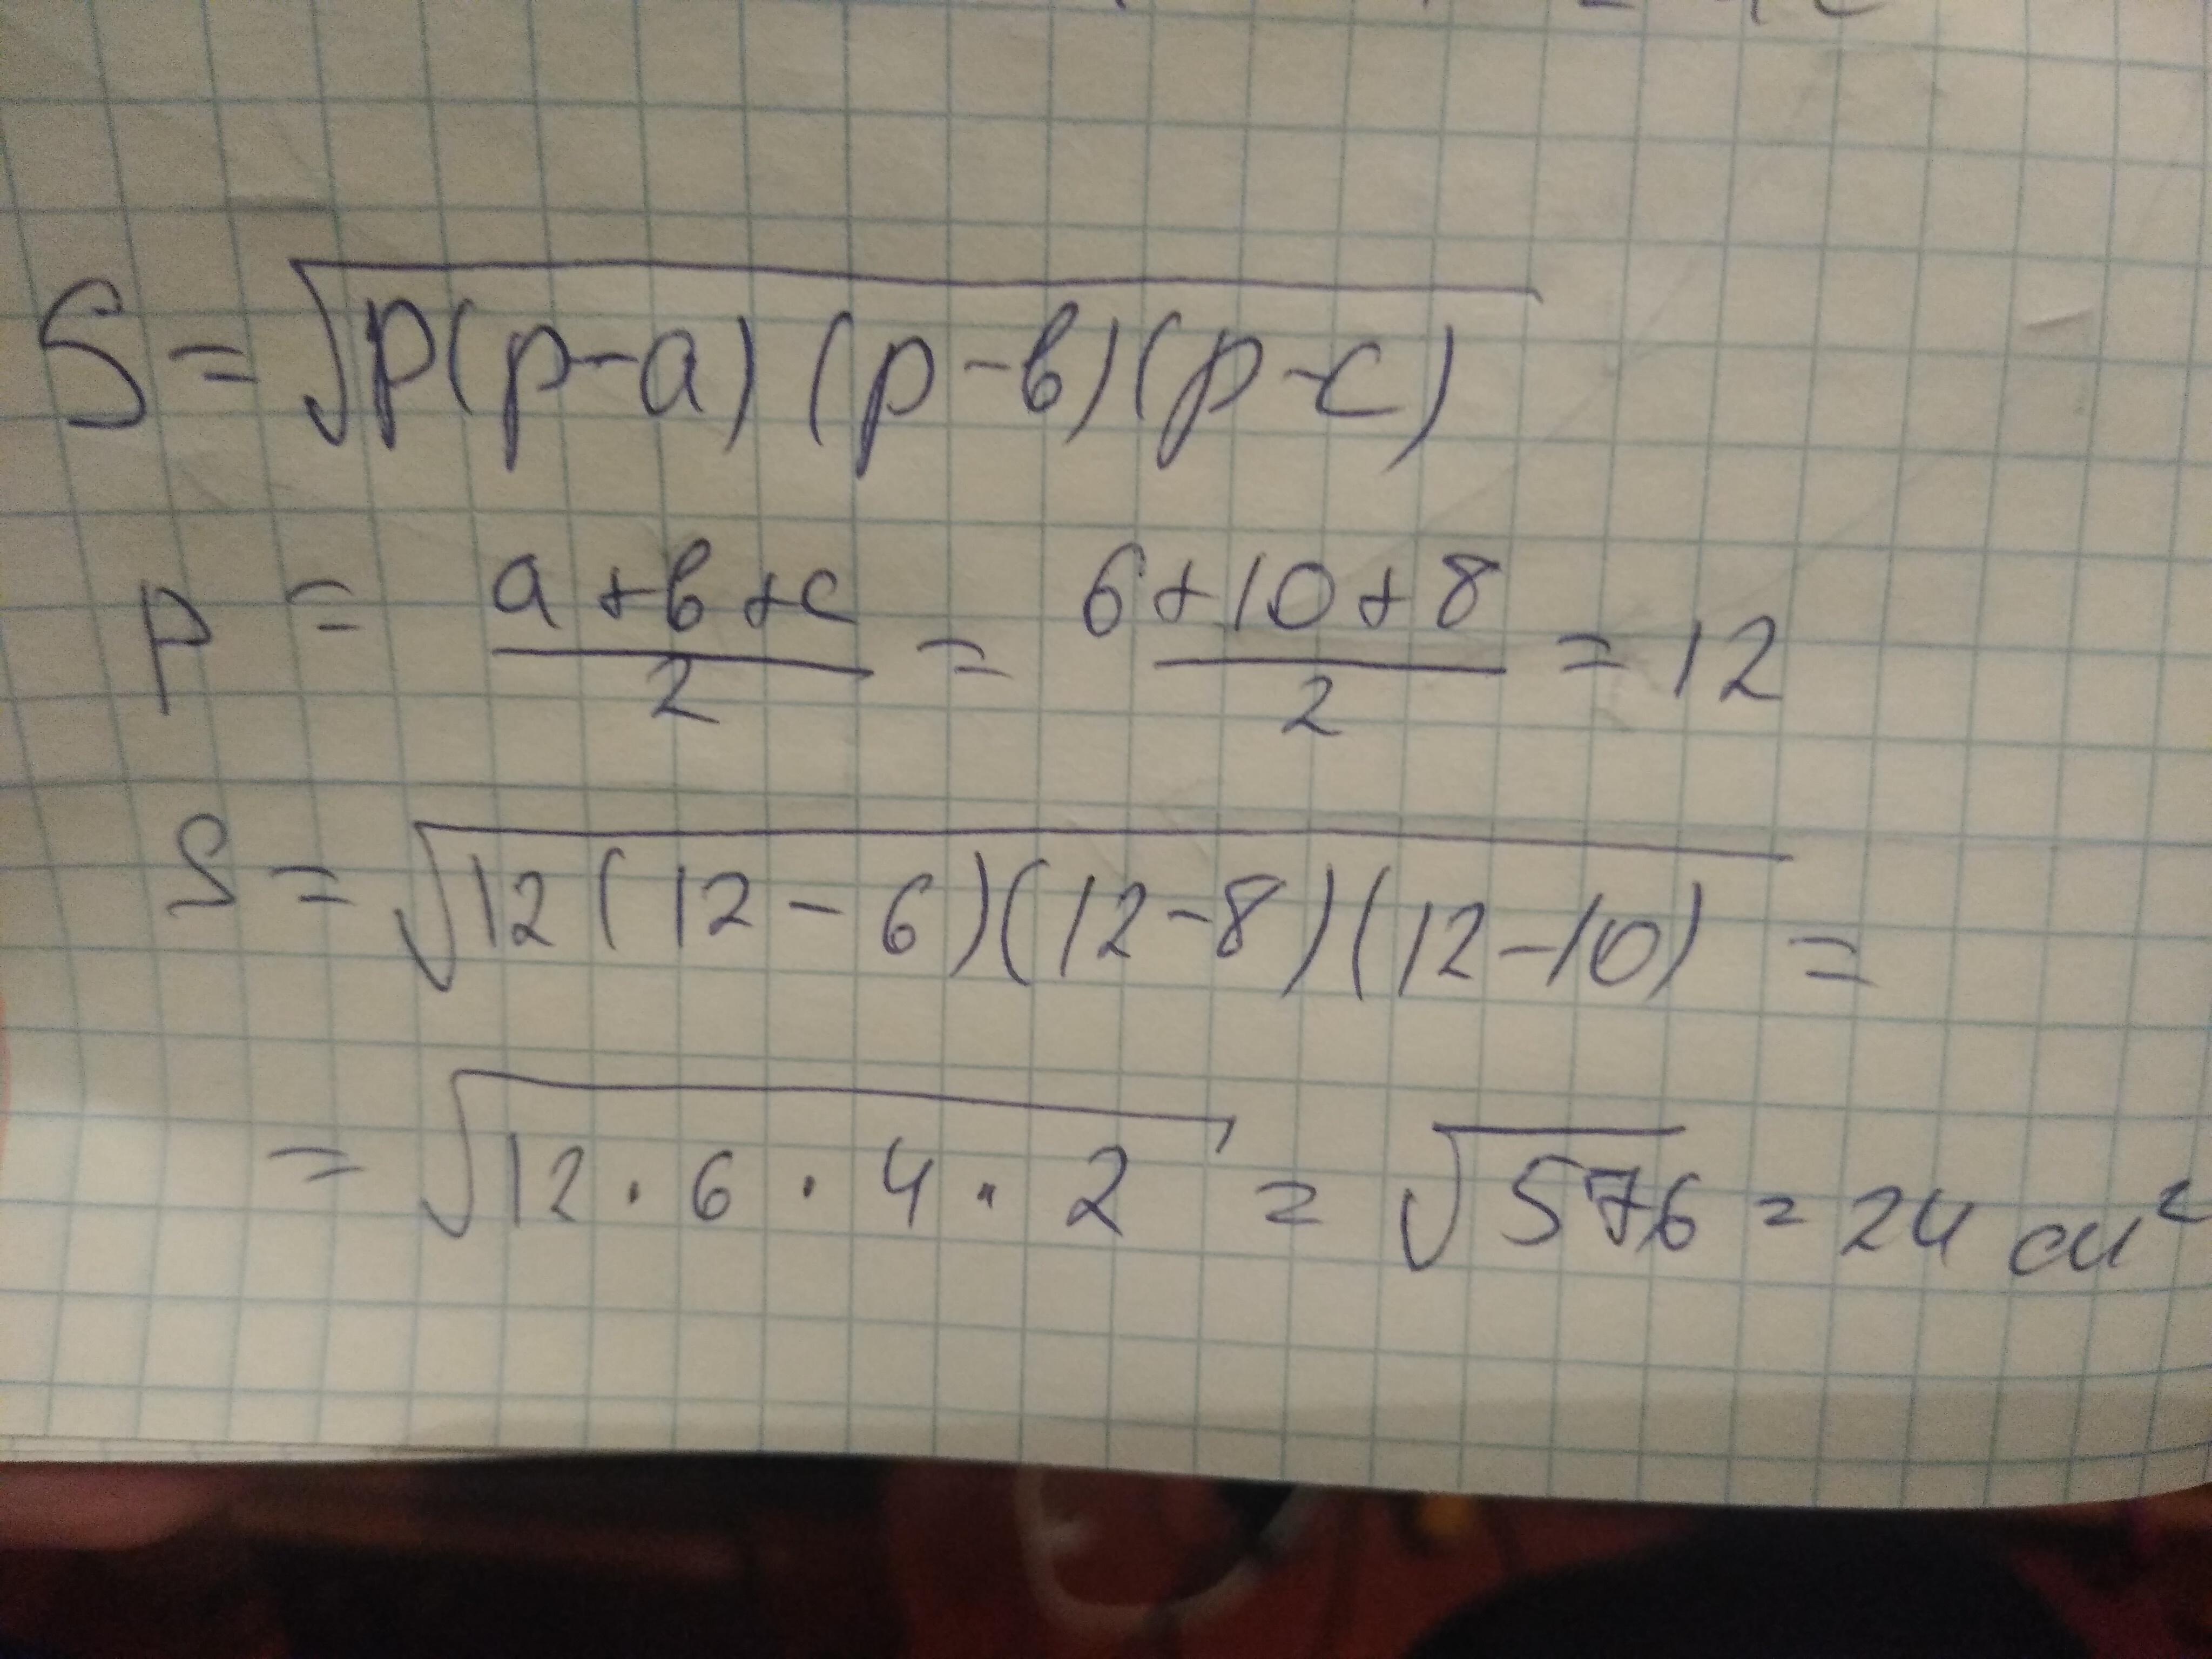 S = √p(p-a)(p-в)(p-c)
p = (a+в+c)/2 = (6+10+8)/2 = 12
S = √12(12-6)(12-8)(12-10) =
= √12·6·4·2 = √576 = 24 см²